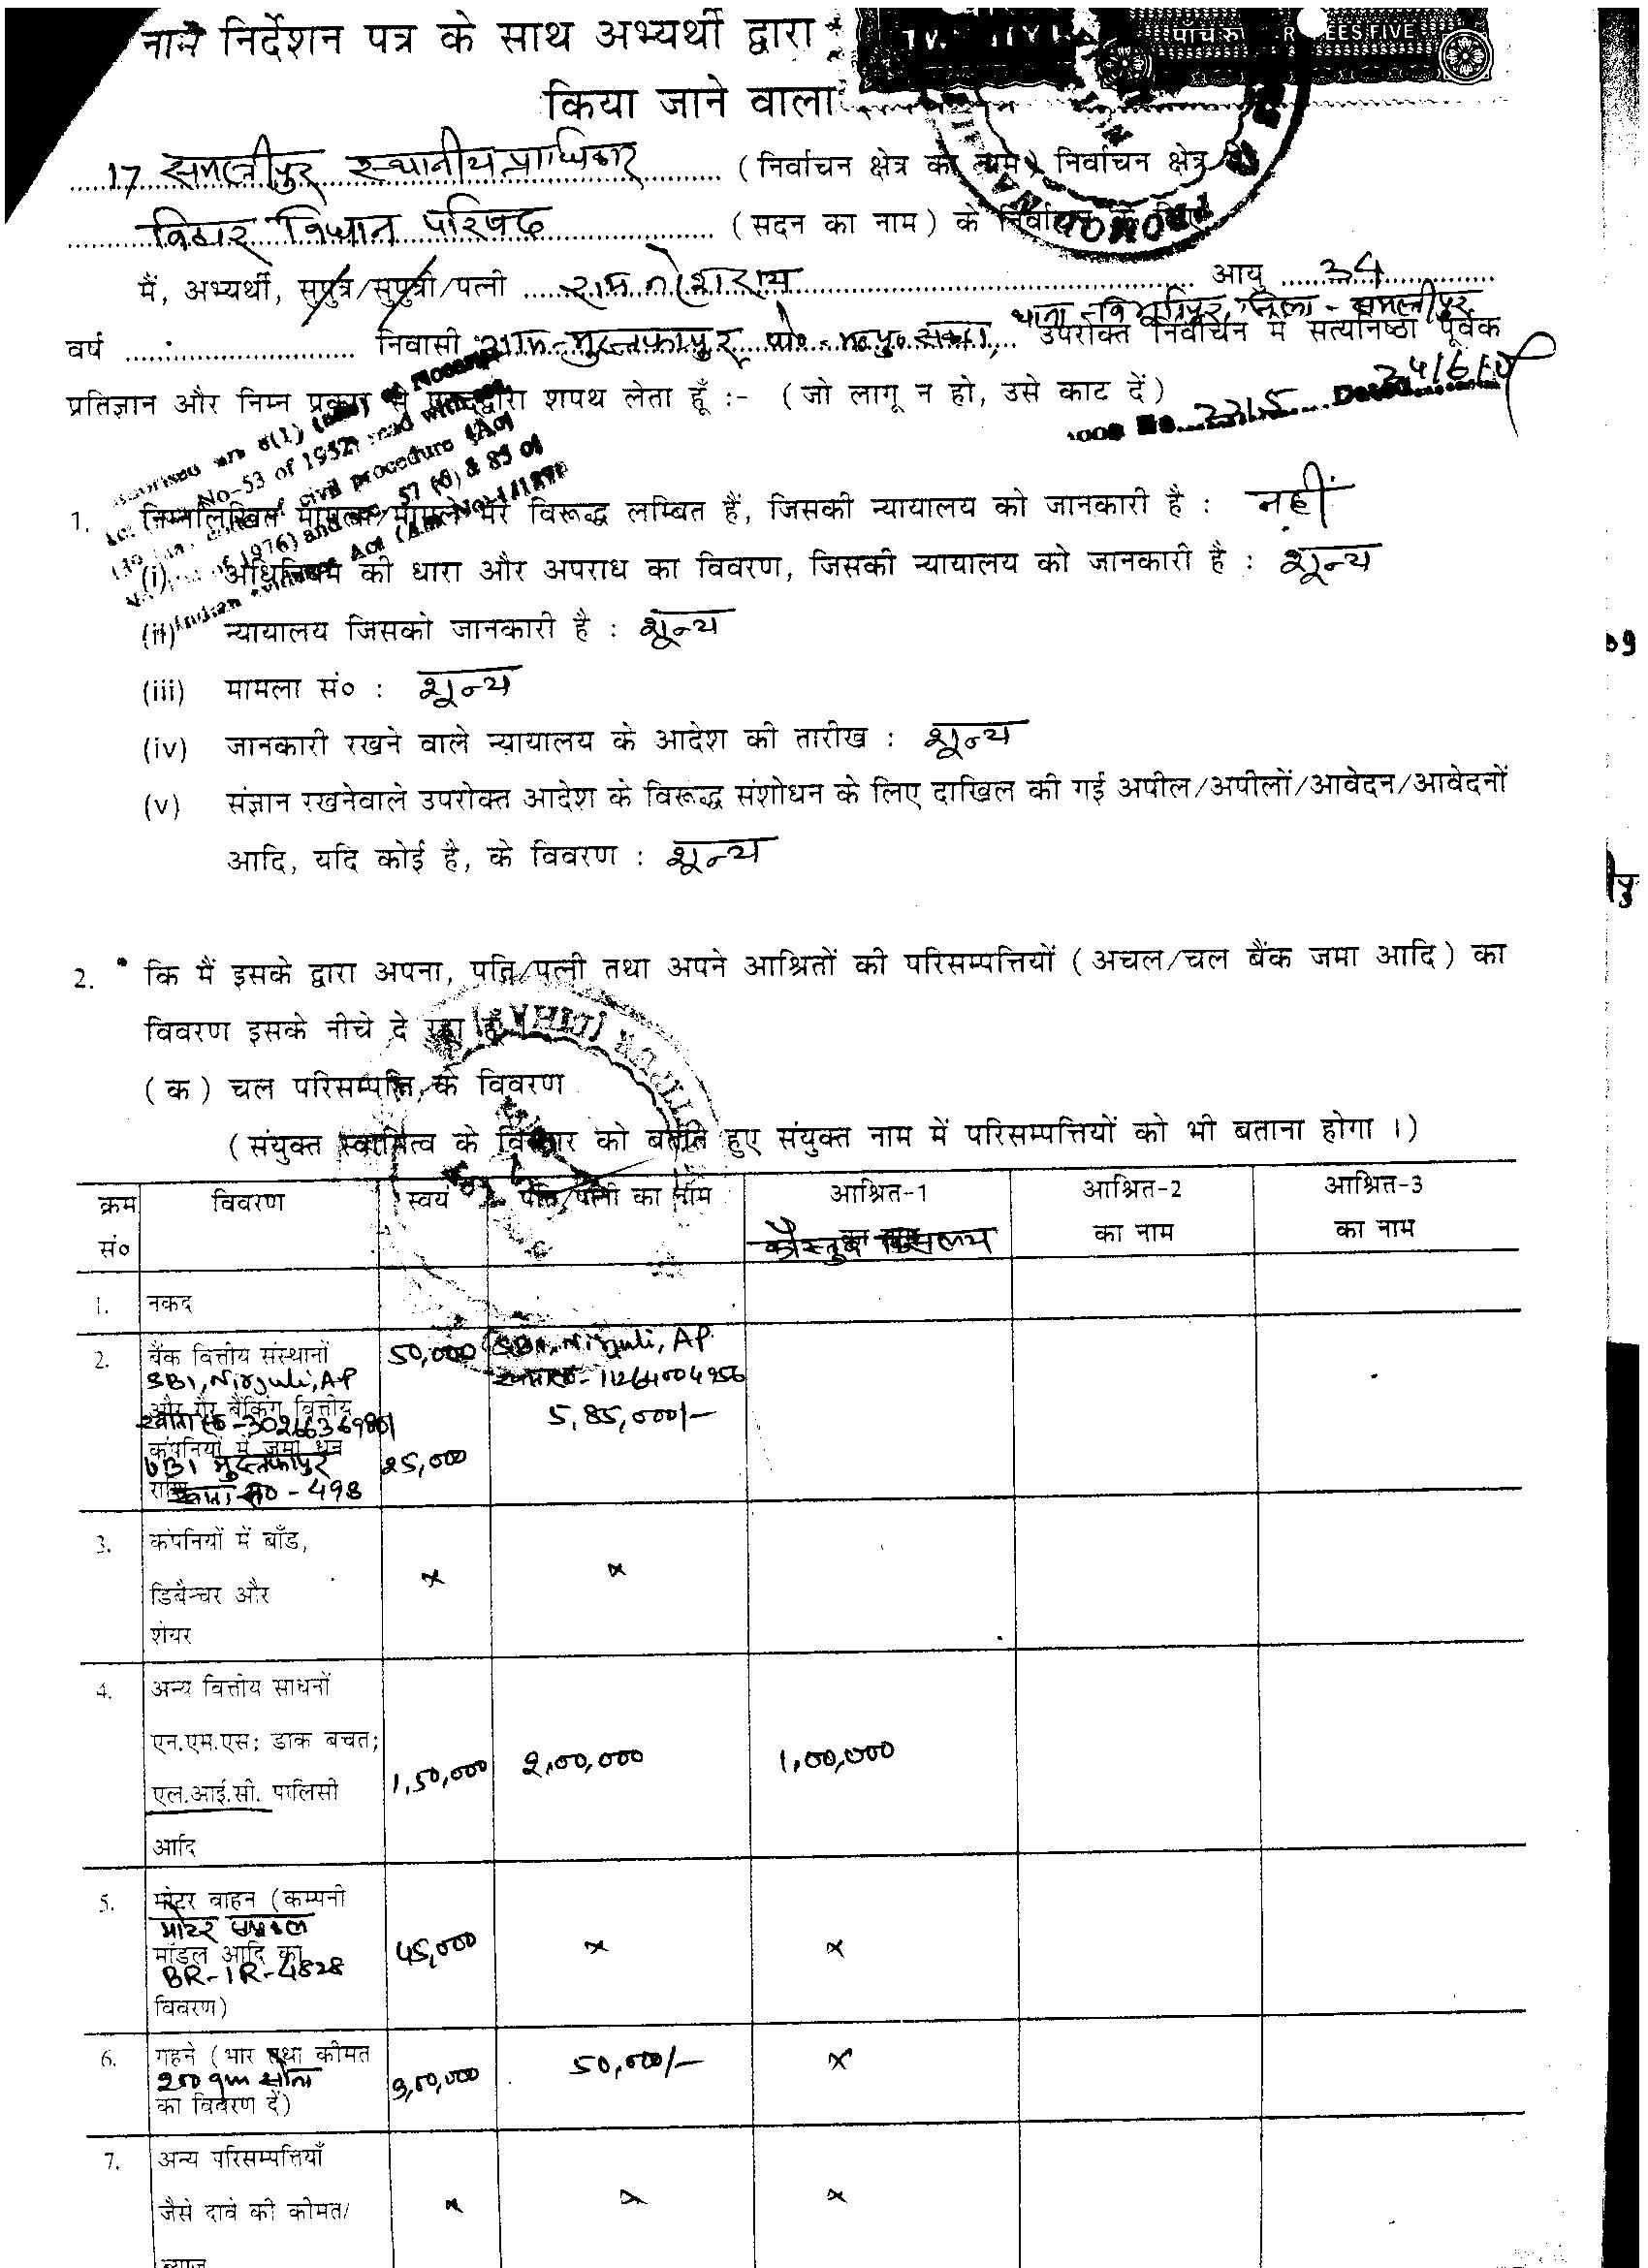 नाम निर्देशन पत्र के साथ अभ्यर्थी द्वारा
पाँच रु RUPEES FIVE
किया जाने वाला
17 समस्तीपुर स्थानीय प्राधिकार (निर्वाचन क्षेत्र का नाम) निर्वाचन क्षेत्र से
बिहार विधान परिषद (सदन का नाम) के निर्वाचन के लिए
मैं, अभ्यर्थी, सुपुत्र/सुपुत्री/पत्नी राम नरेश राय आयु 34
थाना - विभूतिपुर, जिला - समस्तीपुर
वर्ष निवासी ग्राम-मुस्तफापुर, पो०- उपरोक्त निर्वाचन में सत्यनिष्ठा पूर्वक
प्रतिज्ञान और निम्न प्रकार से एतद्द्वारा शपथ लेता हूँ :- (जो लागू न हो, उसे काट दें)
No. 2215 Dated 24/6/09
No-53 of 1952) read with
civil procedure (Act
1976) and 57 (6) & 85 of
Indian Act
1. निम्नलिखित मामला/मामले मेरे विरूद्ध लम्बित हैं, जिसकी न्यायालय को जानकारी है : नहीं
(i) अधिनियम की धारा और अपराध का विवरण, जिसकी न्यायालय को जानकारी है : शून्य
(ii) न्यायालय जिसको जानकारी है : शून्य
(iii) मामला सं० : शून्य
(iv) जानकारी रखने वाले न्यायालय के आदेश की तारीख : शून्य
(v) संज्ञान रखनेवाले उपरोक्त आदेश के विरूद्ध संशोधन के लिए दाखिल की गई अपील/अपीलों/आवेदन/आवेदनों
आदि, यदि कोई है, के विवरण : शून्य
2. कि मैं इसके द्वारा अपना, पति/पत्नी तथा अपने आश्रितों की परिसम्पत्तियों (अचल/चल बैंक जमा आदि) का
विवरण इसके नीचे दे रहा हूँ
(क) चल परिसम्पत्ति के विवरण
(संयुक्त स्वामित्व के विस्तार को बताते हुए संयुक्त नाम में परिसम्पत्तियों को भी बताना होगा ।)
क्रम सं० विवरण स्वयं पति/पत्नी का नाम आश्रित-1 का नाम आश्रित-2 का नाम आश्रित-3 का नाम
1. नकद
2. बैंक वित्तीय संस्थानों 50,000 SBI, Nirjuli, AP
SBI, Nirjuli, AP खाता सं०- 11264004256
और गैर बैंकिंग वित्तीय 5,85,000/-
खाता सं०-30266369801
कंपनियों में जमा धन
UBI मुस्तफापुर 25,000
राशि खाता सं०-498
3. कंपनियों में बाँड, × ×
डिबैन्चर और
शेयर
4. अन्य वित्तीय साधनों
एन.एम.एस; डाक बचत; 1,50,000 2,00,000 1,00,000
एल.आई.सी. पालिसी
आदि
5. मोटर वाहन (कम्पनी
मोटर साइकल 45,000 × ×
मॉडल आदि का
BR-1R-4828
विवरण)
6. गहने (भार तथा कीमत 50,000/- ×
200 gm सोना 3,00,000
का विवरण दें)
7. अन्य परिसम्पत्तियाँ
जैसे दावे की कीमत/ × × ×
ब्याज